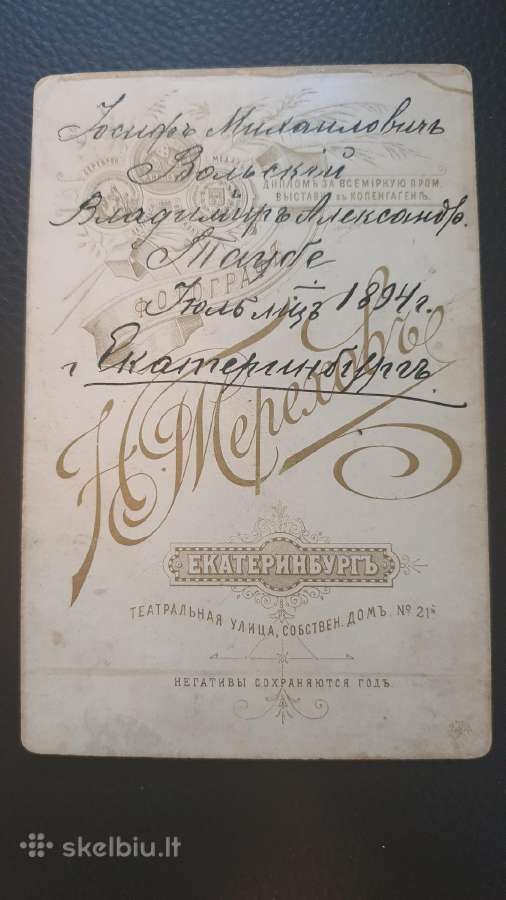 Іосифъ Михаиловичъ
Вольскій
ДИПЛОМЪ ЗА ВСЕМІРНУЮ ПРОМ.
ВЫСТАВКУ ВЪ КОПЕНГАГЕНѢ.
Владимиръ Александр.
Таубе
ФОТОГРАФЪ
Іюль мцъ 1894 г.
г Екатеринбургъ
Н. Тереховъ
ЕКАТЕРИНБУРГЪ
ТЕАТРАЛЬНАЯ УЛИЦА, СОБСТВЕН. ДОМЪ. № 21й
НЕГАТИВЫ СОХРАНЯЮТСЯ ГОДЪ.
skelbiu.lt